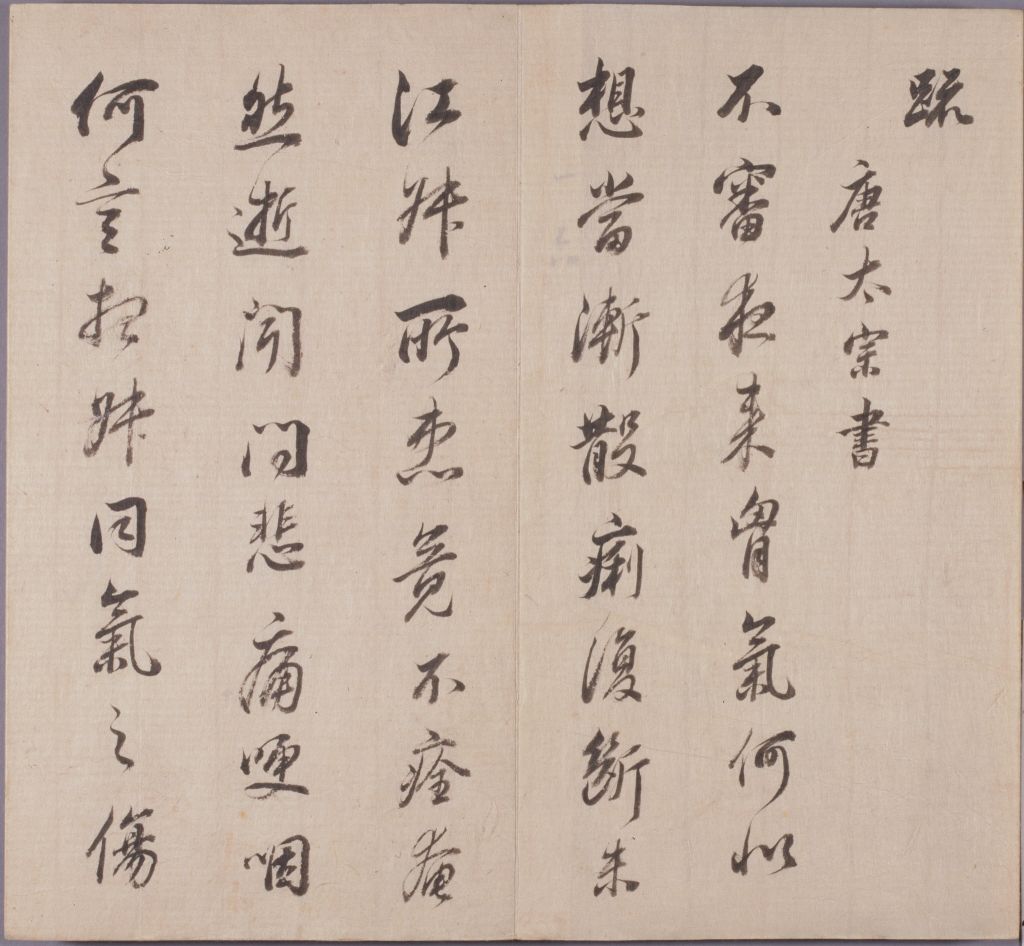 疏
唐太宗書
不審夜来胃氣何似
想當漸散痢復斷未
江妹所患竟不痊奄
然逝聞問悲痛哽咽
何言想妹同氣之傷